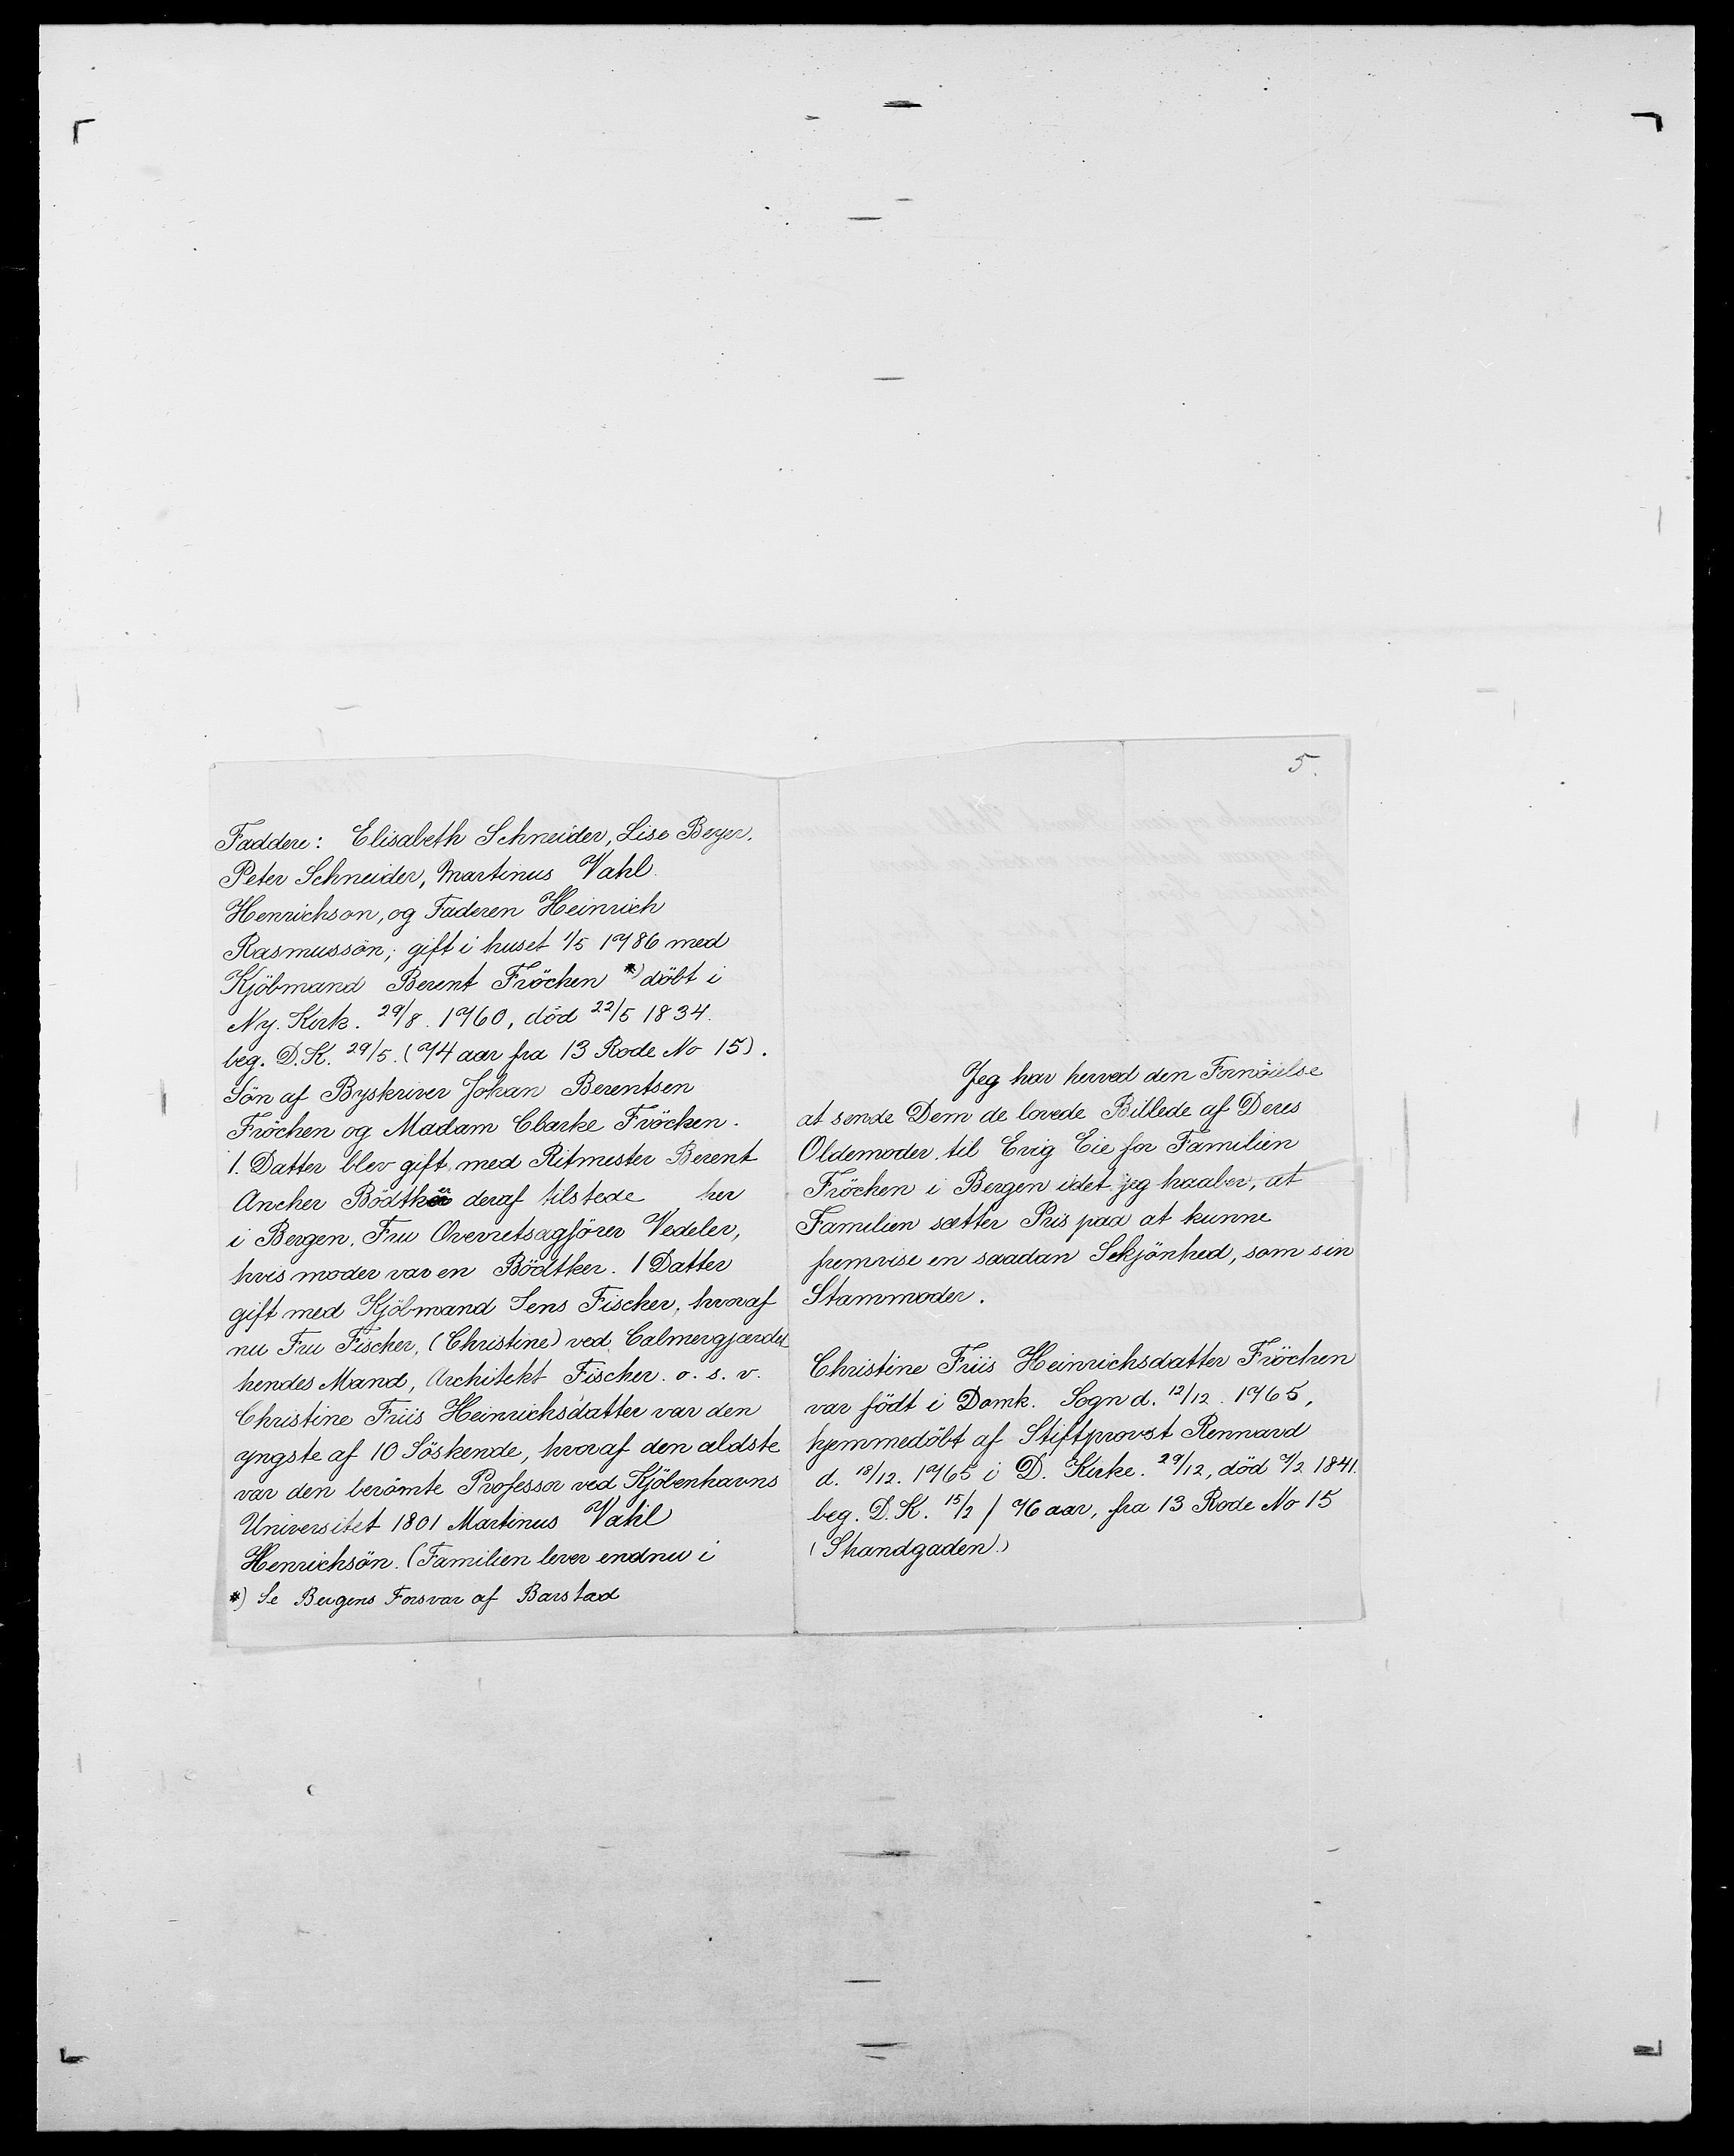 Faddere: Elisabeth Schneider, Lise Beyer.
Peter Schneider, Martinus Vahl
Henrichson, og Faderen Heinrich
Rasmussön; gift i huset 1/5 1786 med
Kjöbmand Berent Fröchen *) döbt i
Ny. Kirk. 29/8. 1760, död 22/5 1834.
beg. D.K. 29/5. (74 aar fra 13 Rode No 15).
Sön af Byskriver Johan Berentsen
Fröchen og Madam Clarke Fröchen.
1. Datter blev gift med Ritmester Berent
Ancher Bödtker deraf tilstede her
i Bergen. Fru Overretsagförer Vedeler,
hvis moder var en Bödtker. 1 Datter
gift med Kjöbmand Jens Fischer, hvoraf
nu Fru Fischer, (Christine) ved Calmergjærdet
hendes Mand, Architekt Fischer. o. s. v.
Christine Friis Heinrichsdatter var den
yngste af 10 Söskende, hvoraf den ældste
var den berömte Professor ved Kjöbenhavns
Universitet 1801 Martinus Vahl
Henrichsön. (Familien lever endnu i
*) Se Bergens Forsvar af Barstad
5.
Jeg har herved den Fornöielse
at sende Dem de lovede Billede af Deres
Oldemoder til Evig Eie for Familien
Fröchen i Bergen idet jeg haaber, at
Familien sætter Pris paa at kunne
fremvise en saadan Skjönhed, som sin
Stammoder.
Christine Friis Heinrichsdatter Fröchen
var födt i Domk. Sogn d. 12/12. 1765,
hjemmedöbt af Stiftprovst Rennard
d. 18/12. 1765 i D. Kirke. 29/12, död 7/2 1841.
beg. D.K. 15/2 / 76 aar, fra 13 Rode No 15
(Strandgaden.)